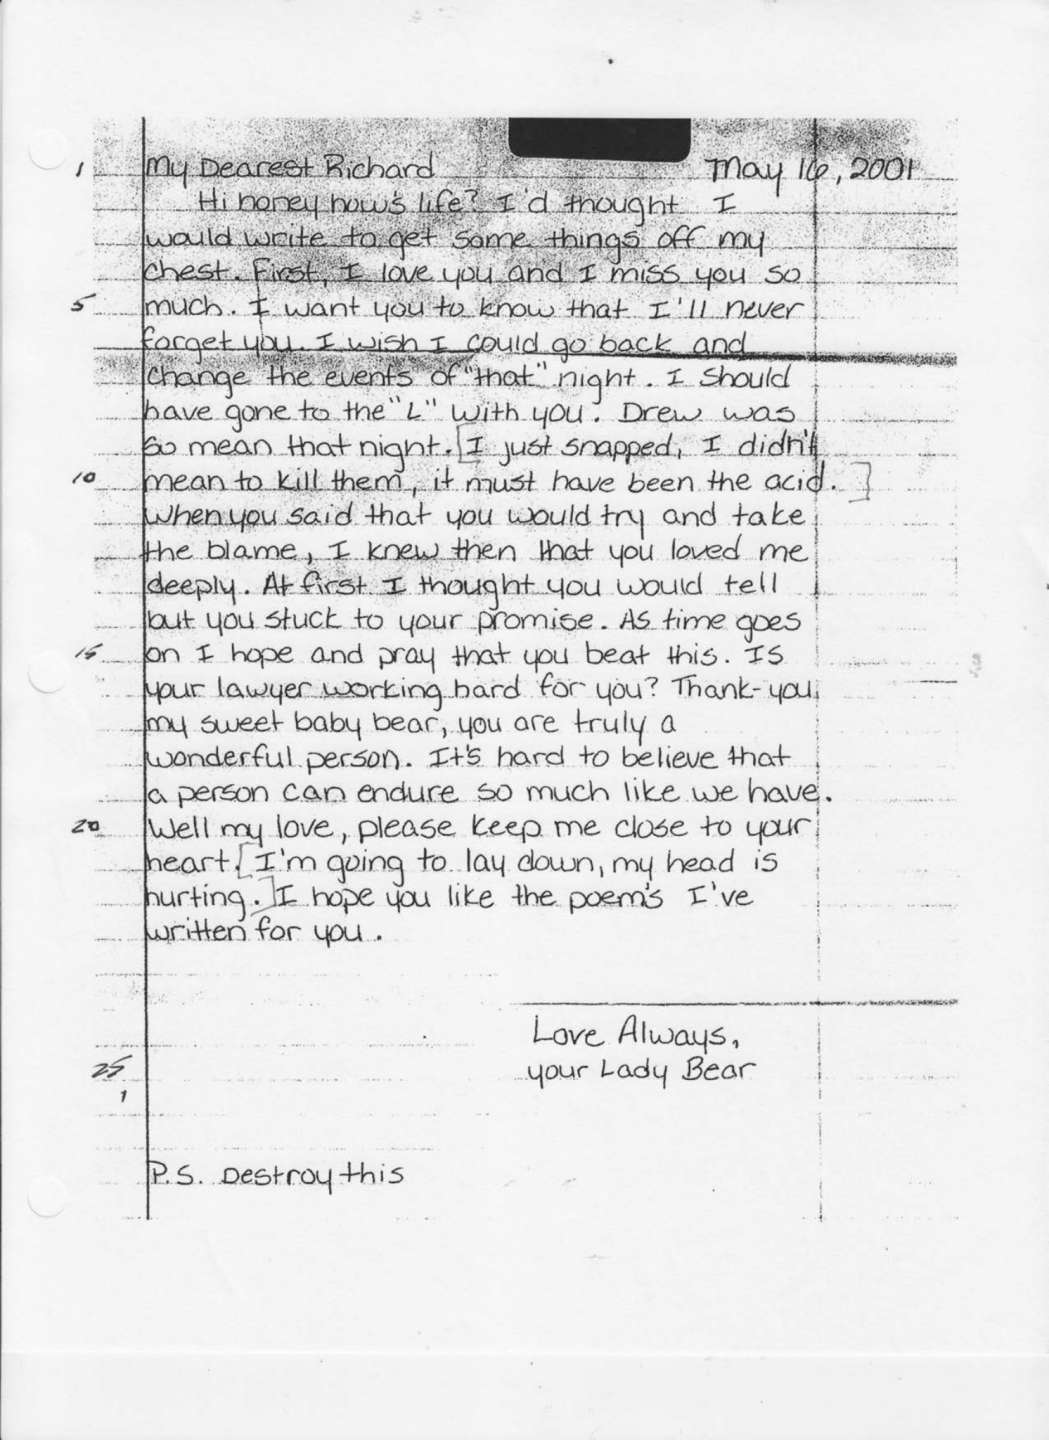 1 My Dearest Richard May 16, 2001
Hi honey how's life? I'd thought I
would write to get some things off my
chest. First, I love you and I miss you so
5 much. I want you to know that I'll never
forget you. I wish I could go back and
change the events of "that" night. I should
have gone to the "L" with you. Drew was
so mean that night. [I just snapped, I didn't
10 mean to kill them, it must have been the acid.]
When you said that you would try and take
the blame, I knew then that you loved me
deeply. At first I thought you would tell
but you stuck to your promise. As time goes
15 on I hope and pray that you beat this. Is
your lawyer working hard for you? Thank-you
my sweet baby bear, you are truly a
wonderful person. It's hard to believe that
a person can endure so much like we have.
20 Well my love, please keep me close to your
heart. [I'm going to lay down, my head is
hurting.] I hope you like the poem's I've
written for you.
Love Always,
25 your Lady Bear
1
P.S. Destroy this